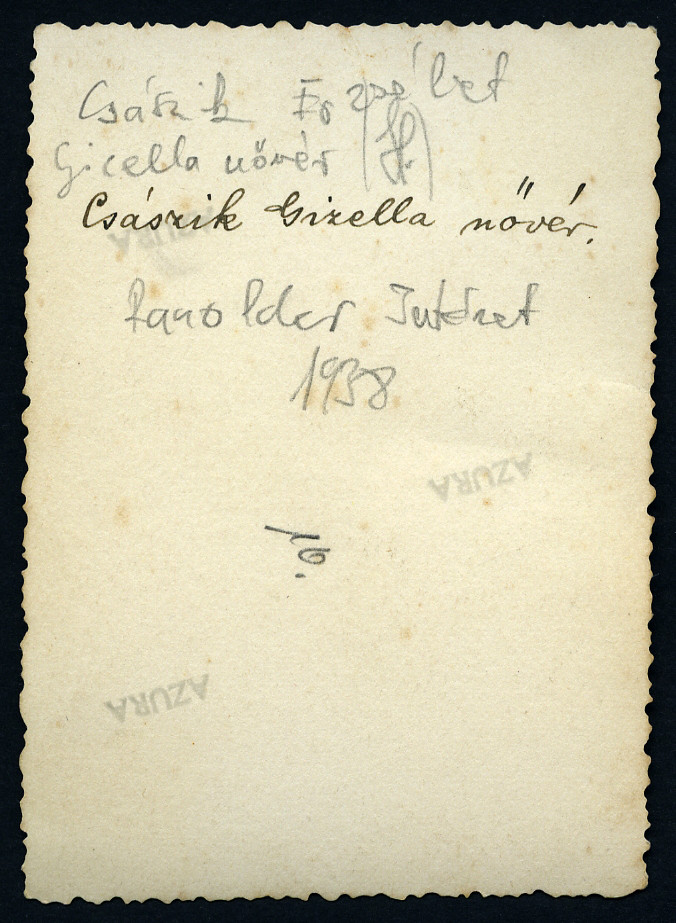 Császik Erzsébet
Gicella nővér (H.)
Császik Gizella nővér.
AZURA
Ranolder Intézet
1938
AZURA
16.
AZURA